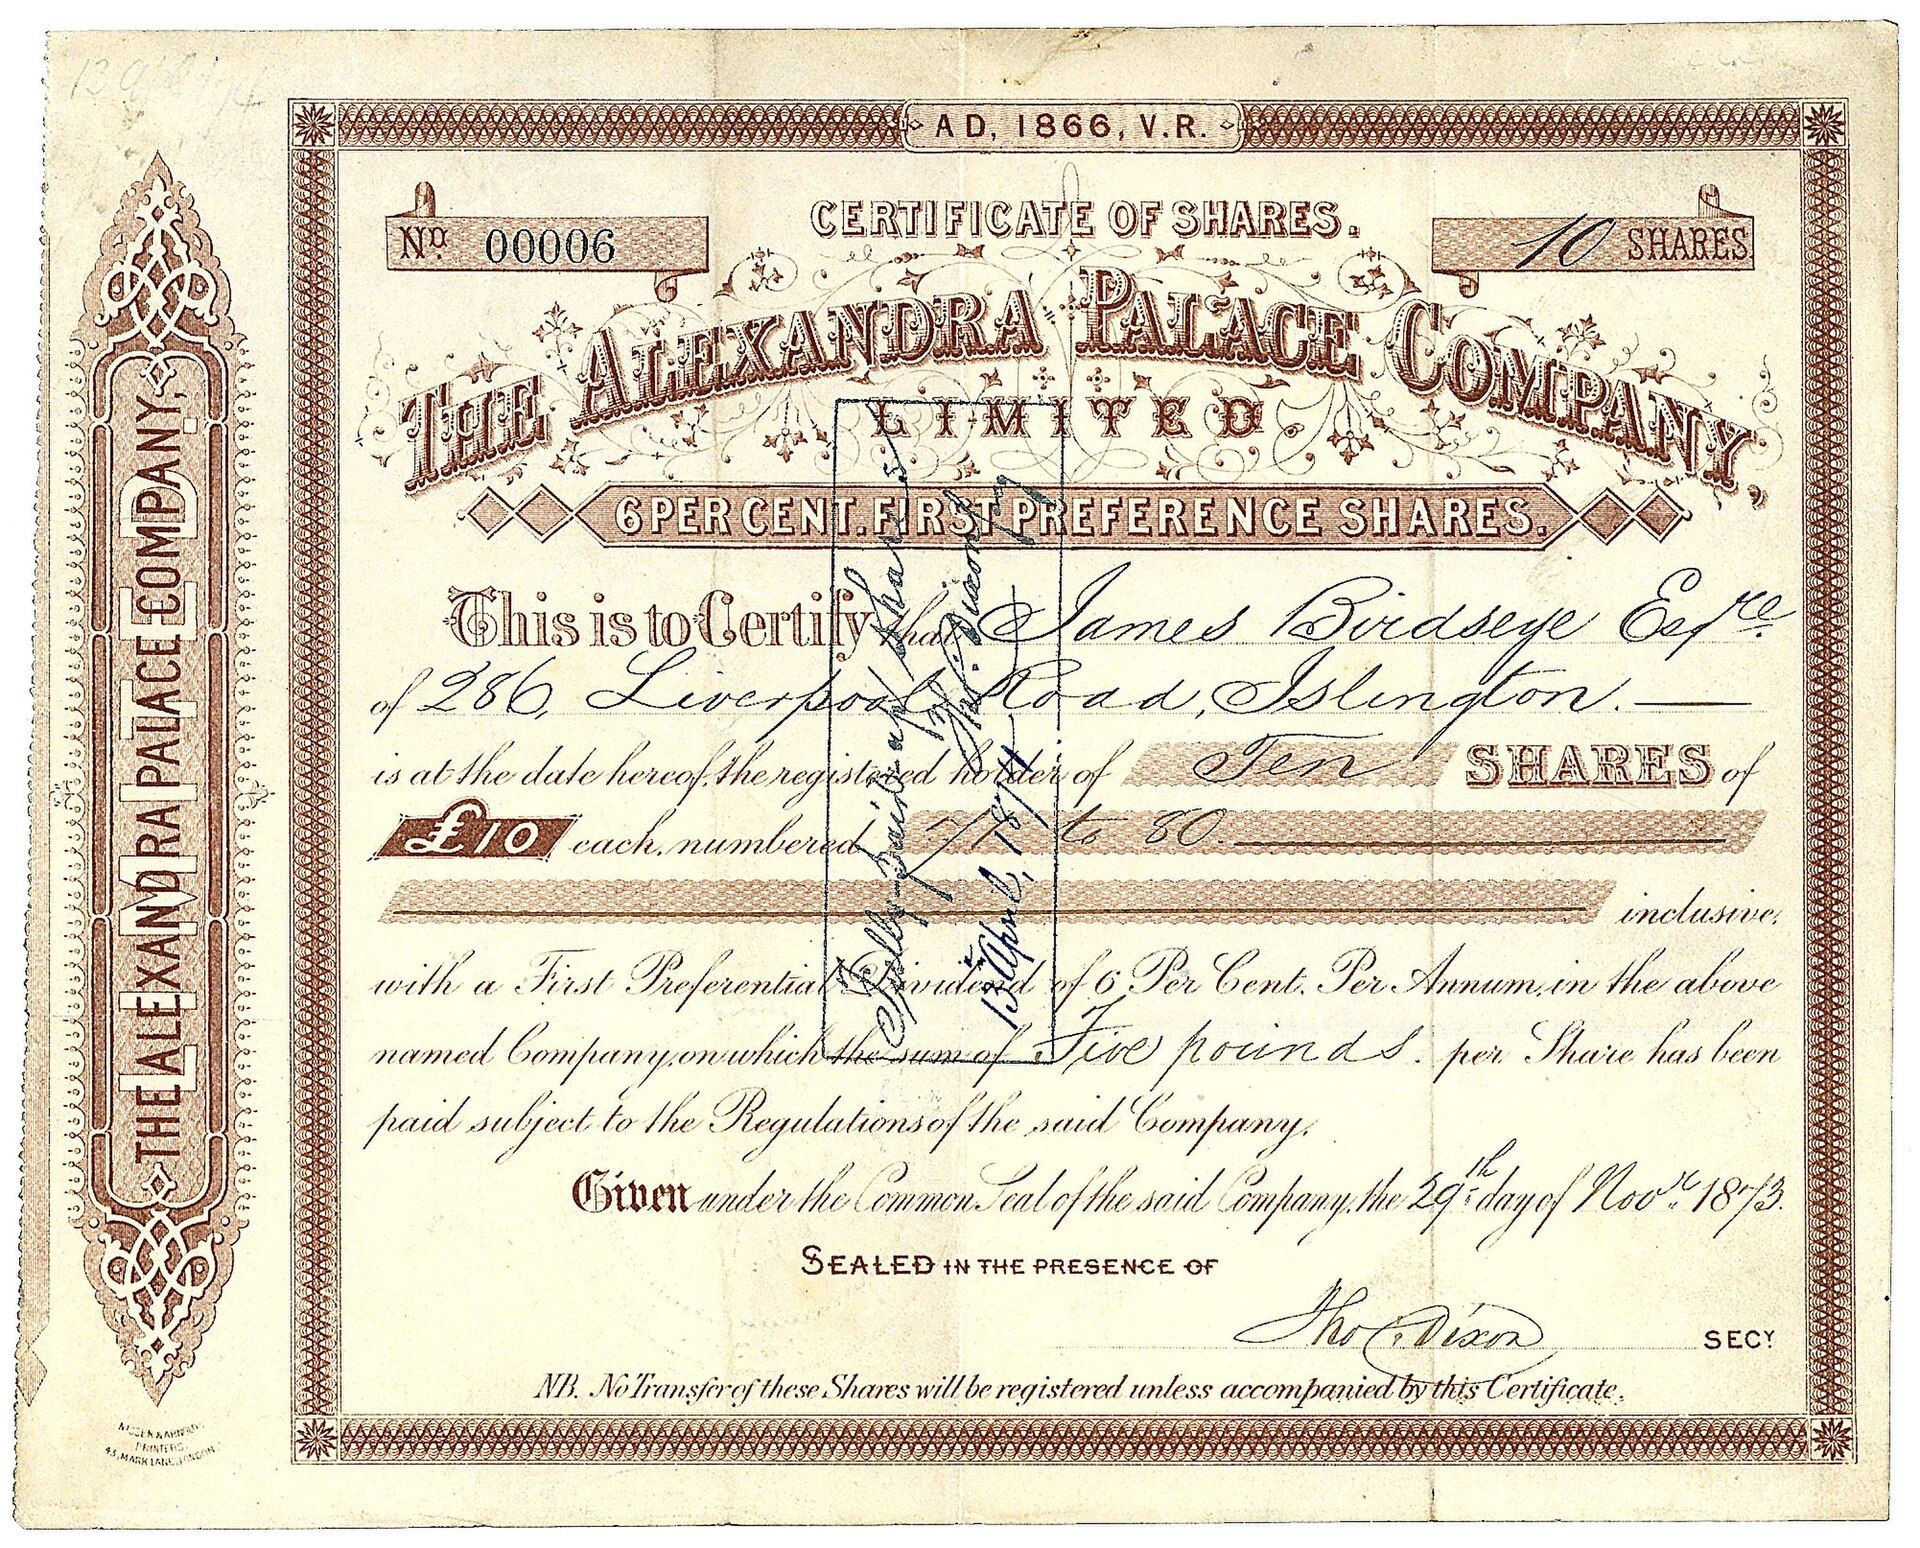 AD, 1866, V.R.
CERTIFICATE OF SHARES.
No. 00006
10 SHARES
THE ALEXANDRA PALACE COMPANY,
LIMITED
6 PER CENT. FIRST PREFERENCE SHARES.
This is to Certify that James Birdseye Esqre.
of 286, Liverpool Road, Islington.
is at the date hereof, the registered holder of Ten SHARES of
£10 each, numbered 71 to 80.
inclusive,
with a First Preferential Dividend of 6 Per Cent. Per Annum, in the above
named Company, on which the sum of Five pounds. per Share has been
paid subject to the Regulations of the said Company.
Given under the Common Seal of the said Company, the 29th day of Novr. 1873.
SEALED IN THE PRESENCE OF
Tho. Dixon SECY
NB. No Transfer of these Shares will be registered unless accompanied by this Certificate.
Fully paid up shares
Tho. Dixon
13 April, 1874
THE ALEXANDRA PALACE COMPANY,
LIMITED
PRINTERS
43, MARK LANE, LONDON